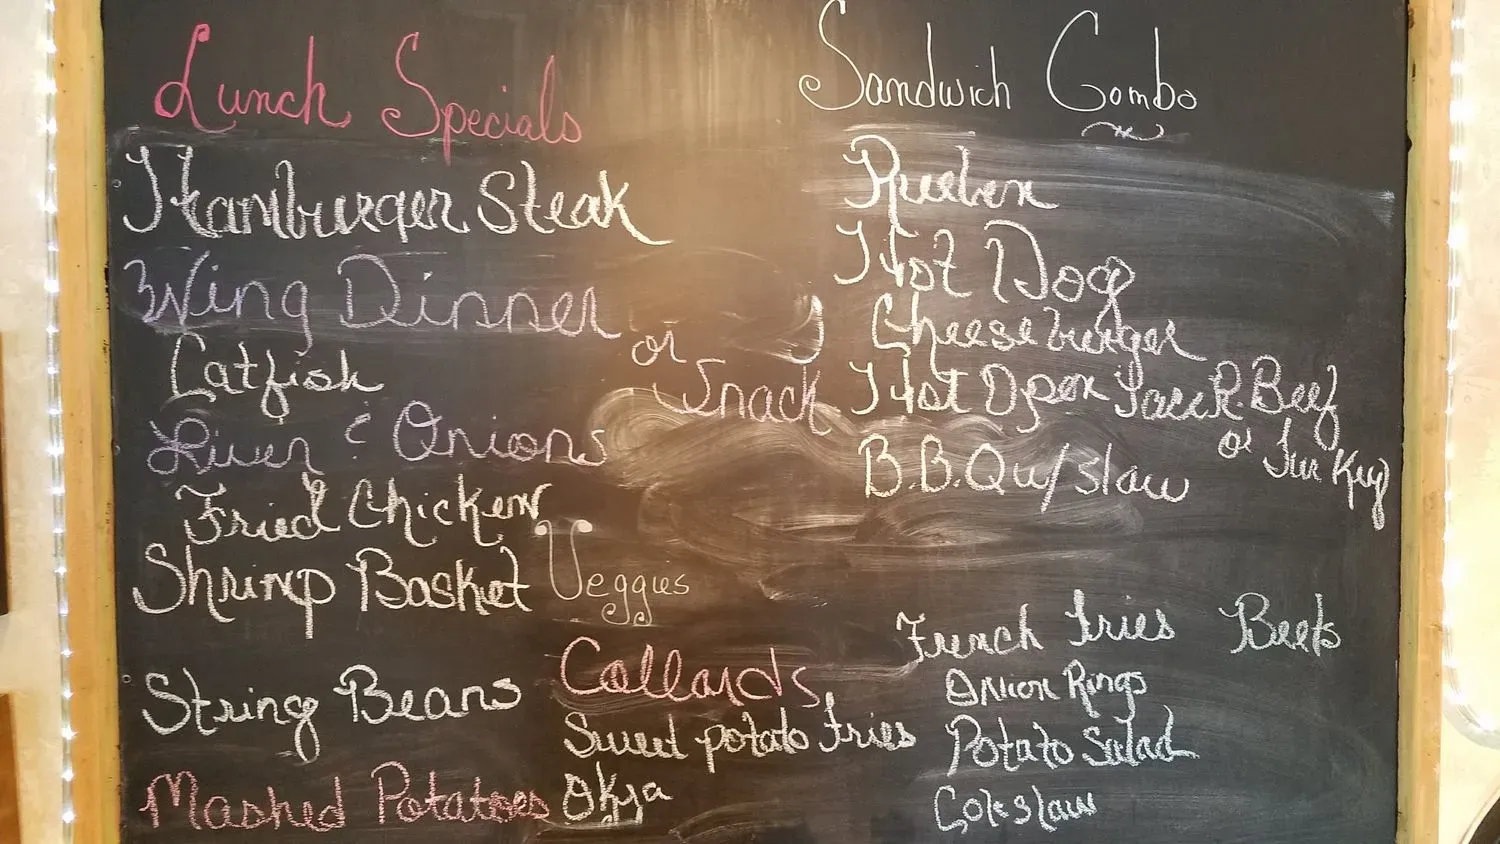 Lunch Specials
Hamburger Steak
Wing Dinner
or Snack
Catfish
Liver & Onions
Fried Chicken
Shrimp Basket
Sandwich Combo
Reuben
Hot Dog
Cheeseburger
Hot Open Face R. Beef
or Turkey
B.B.Q w/slaw
Veggies
String Beans
Mashed Potatoes
Collards
Sweet potato Fries
Okra
French Fries
Onion Rings
Potato Salad
Coleslaw
Beets